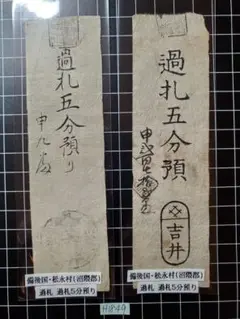 過札五分預り
申九
備後国・松永村(沼隈郡)
過札 過札5分預り
過札五分預
吉井
備後国・松永村(沼隈郡)
過札 過札5分預り
H1849